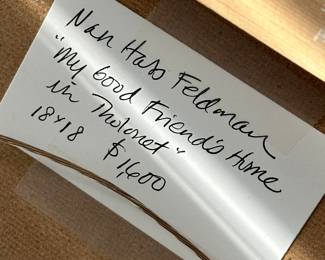 Nan Hass Feldman
"My Good Friend's Home
in Tholonet"
18x18
$1,600